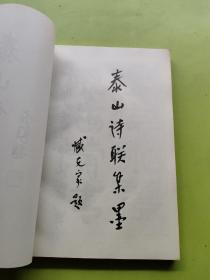 泰山诗联集墨
臧克家题